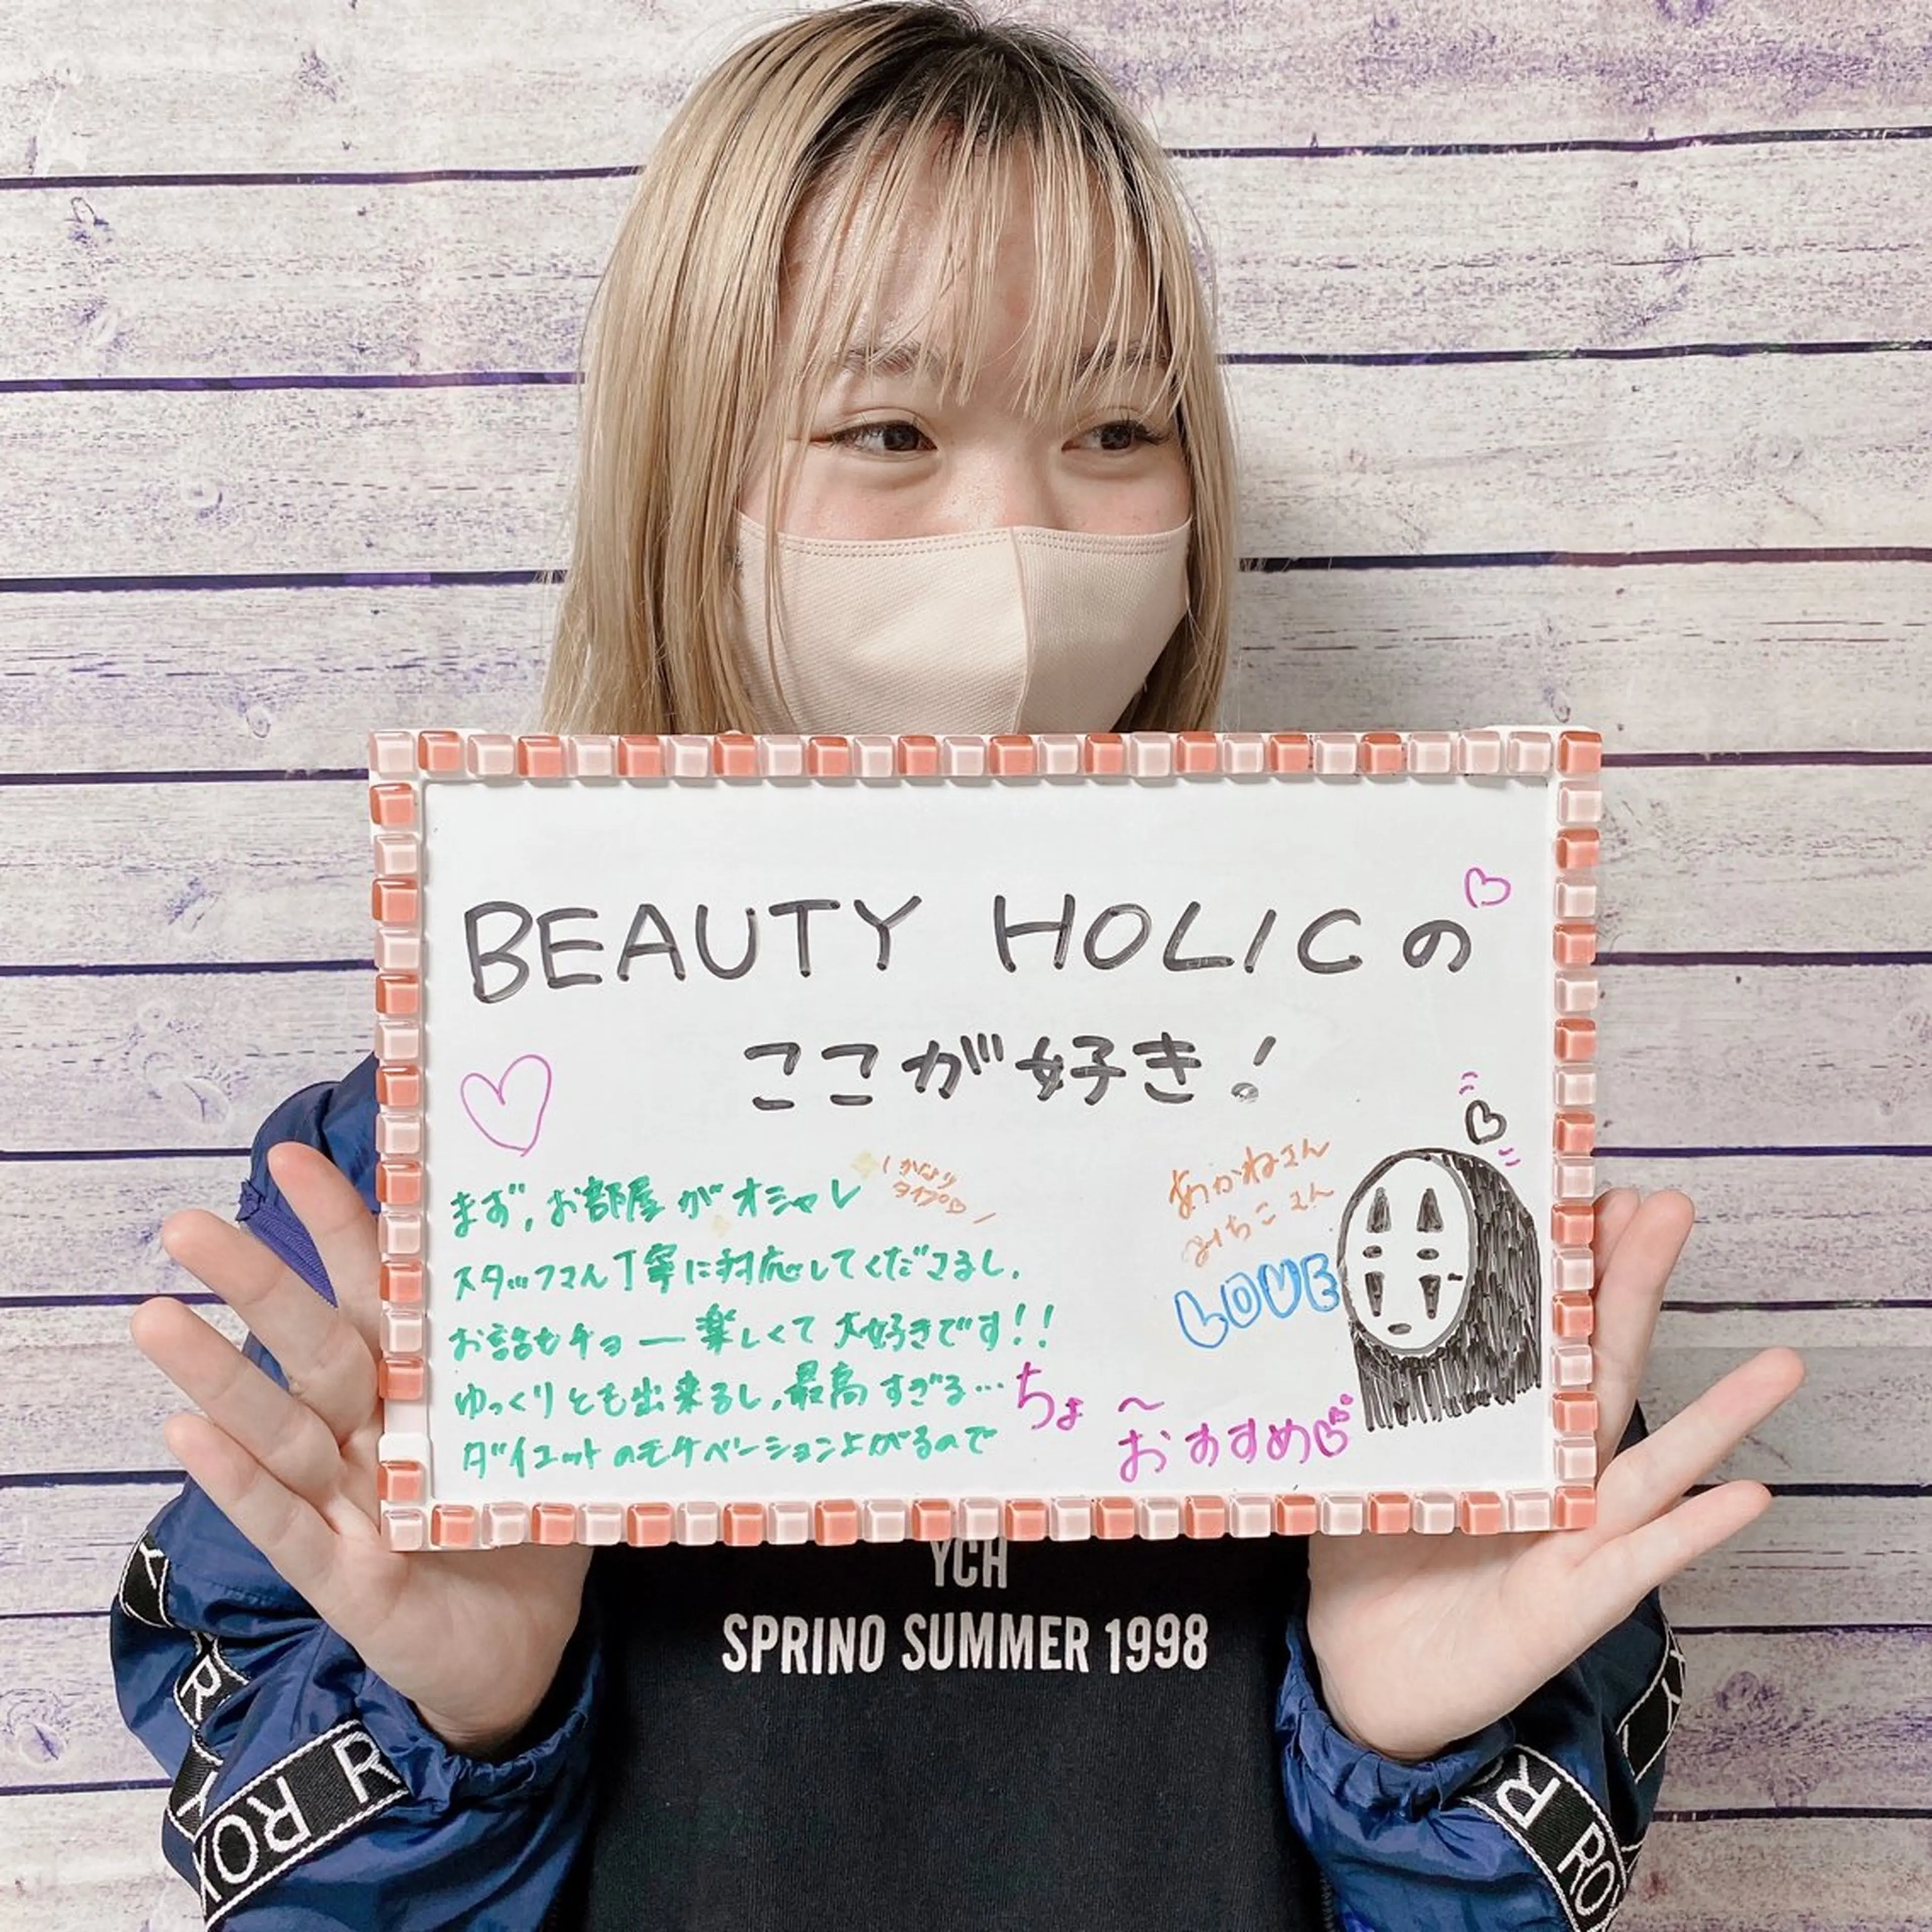 BEAUTY HOLICの
ここが好き!
まず、お部屋がオシャレ
かなり
タイプ♡
スタッフさん丁寧に対応してくださるし、
お話もチョー楽しくて大好きです!!
ゆっくりとも出来るし、最高すぎる…
ダイエットのモチベーション上がるので
ちょ〜
おすすめ
あかねさん
みちこさん
LOVE
YCH
SPRINO SUMMER 1998
ROX
R
R
ROX